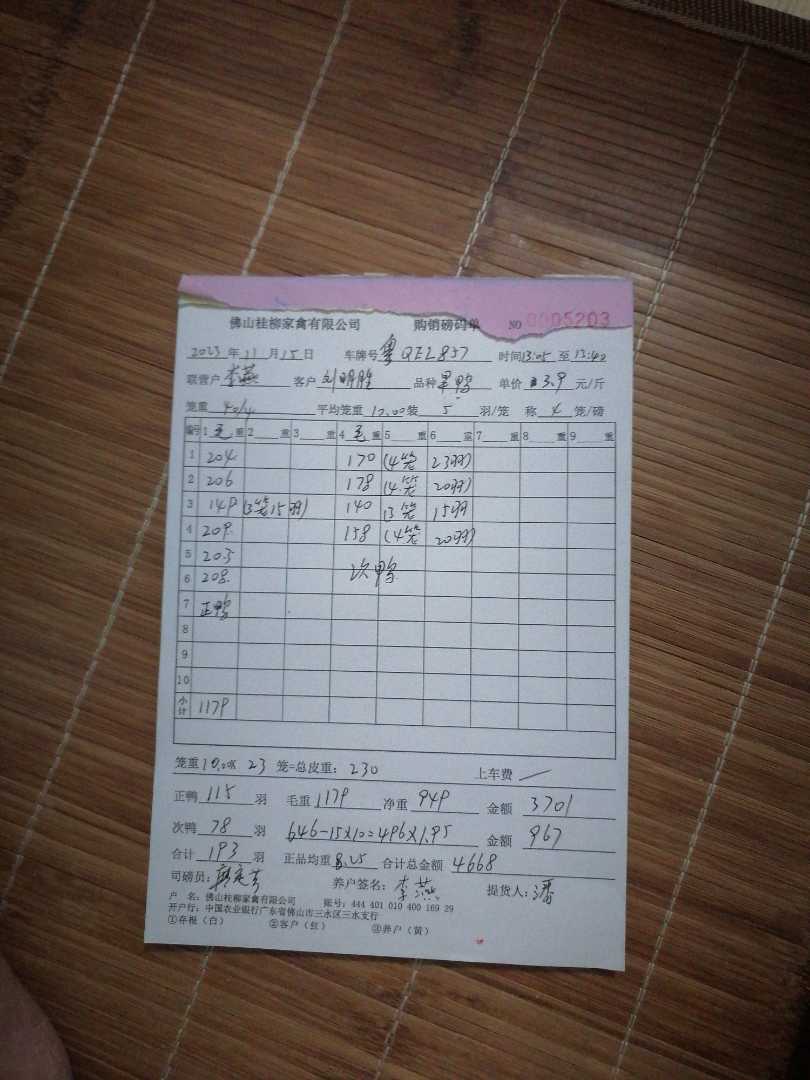 佛山桂柳家禽有限公司 购销磅码单 NO 0005203
2023年11月15日 车牌号 粤QEL857 时间13:05至13:40
联营户 李燕 客户 刘明胜 品种 黑鸭 单价 3.9 元/斤
笼重 40/4 平均笼重 10.00 装 5 羽/笼 称 4 笼/磅
编号 1 毛 重 2 重 3 重 4 毛 重 5 重 6 重 7 重 8 重 9 重
1 204 170 (4笼 23羽)
2 206 178 (4笼 20羽)
3 149 (3笼15羽) 140 (3笼 15羽
4 209. 158 (4笼 20羽)
5 203
6 208. 次鸭
7 正鸭
8
9
10
小计 1179
笼重 10.00X 23 笼=总皮重: 230 上车费 /
正鸭 115 羽 毛重 1179 净重 949 金额 3701
次鸭 78 羽 646-15X10=496X1.95 金额 967
合计 193 羽 正品均重 8.25 合计总金额 4668
司磅员: 养户签名: 李燕 提货人: 潘
户 名: 佛山桂柳家禽有限公司 账号: 444 401 010 400 169 29
开户行: 中国农业银行广东省佛山市三水区三水支行
①存根（白） ②客户（红） ③养户（黄）